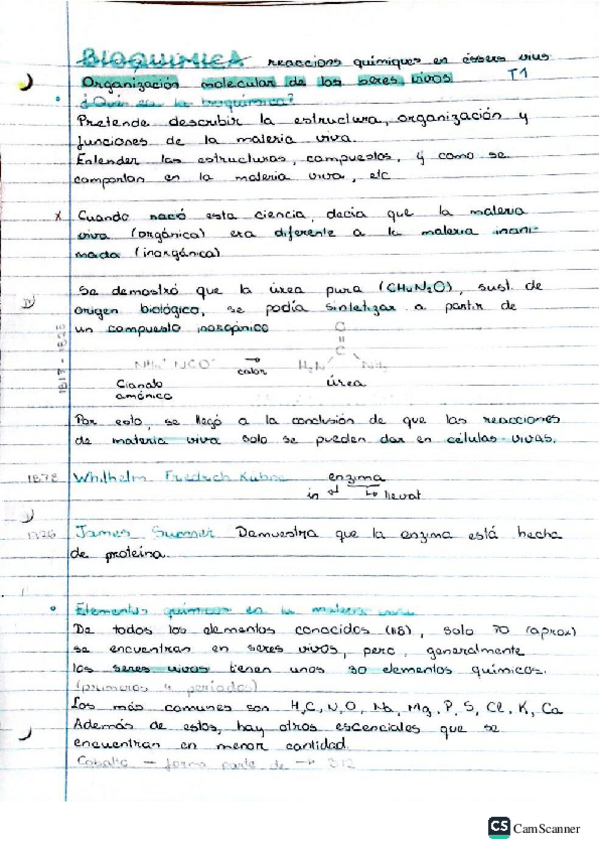 BIOQUIMICA reaccions químiques en éssers vius
Organización molecular de los seres vivos T1
¿Qué es la bioquímica?
Pretende describir la estructura, organización y
funciones de la materia viva.
Entender las estructuras, compuestos, y como se
comportan en la materia viva, etc
x Cuando nació esta ciencia, decía que la materia
viva (orgánica) era diferente a la materia inani-
mada (inorgánica)
Se demostró que la úrea pura (CH4N2O), sust. de
origen biológico, se podía sintetizar a partir de
un compuesto inorgánico
1817 - 1828
O
=
C
NH4+ NCO- → H2N NH2
calor
Cianato úrea
amónico
Por esto, se llegó a la conclusión de que las reacciones
de materia viva solo se pueden dar en células vivas.
1878 Whilhelm Fredrich Kuhne enzima
in llevat
1926 James Sumner Demuestra que la enzima está hecha
de proteína.
Elementos químicos en la materia viva
De todos los elementos conocidos (118), solo 70 (aprox)
se encuentran en seres vivos, pero, generalmente
los seres vivos tienen unos 30 elementos químicos.
(primeros 4 períodos)
Los más comunes son H, C, N, O, Na, Mg, P, S, Cl, K, Ca
Además de estos, hay otros escenciales que se
encuentran en menor cantidad.
Cobalto — forma parte de → B12
CS CamScanner